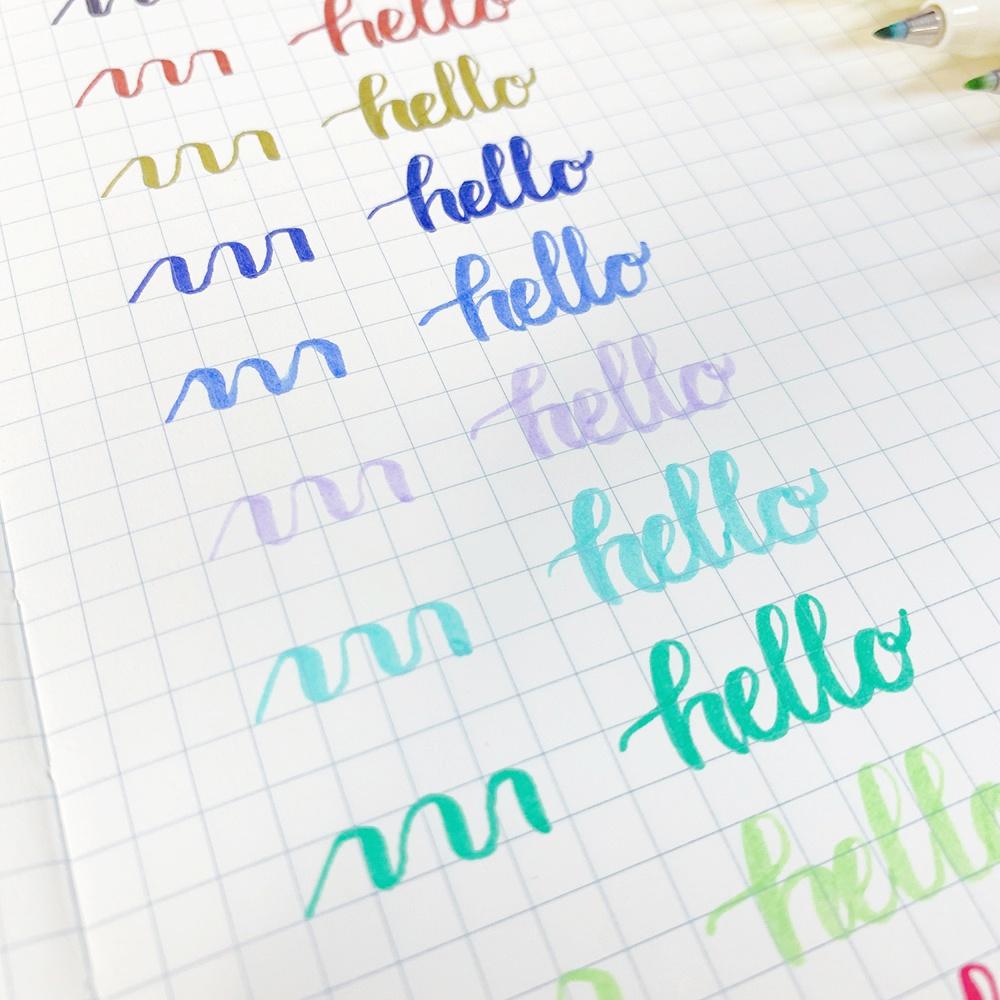 hello
hello
hello
hello
hello
hello
hello
hello